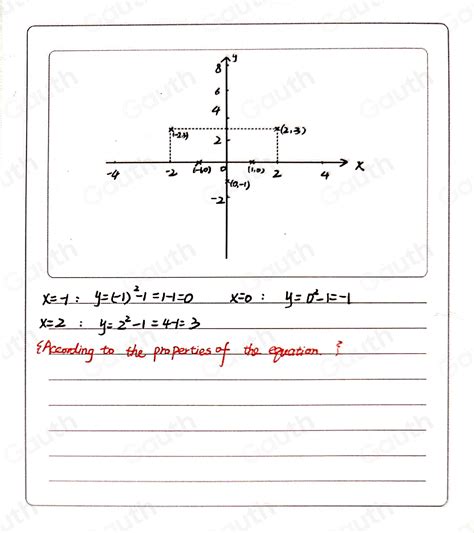 y
8
6
4
(-2,3) (2,3)
2
(-1,0) 0 (1,0) x
-4 -2 2 4
(0,-1)
-2
x=-1 : y=(-1)²-1=1-1=0 x=0 : y=0²-1=-1
x=2 : y=2²-1=4-1=3
{According to the properties of the equation. }
Gauth